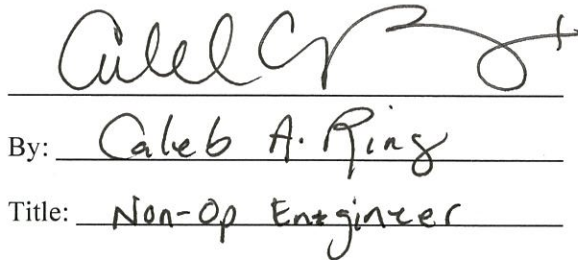 By: Caleb A. Ring
Title: Non-Op Entgineer